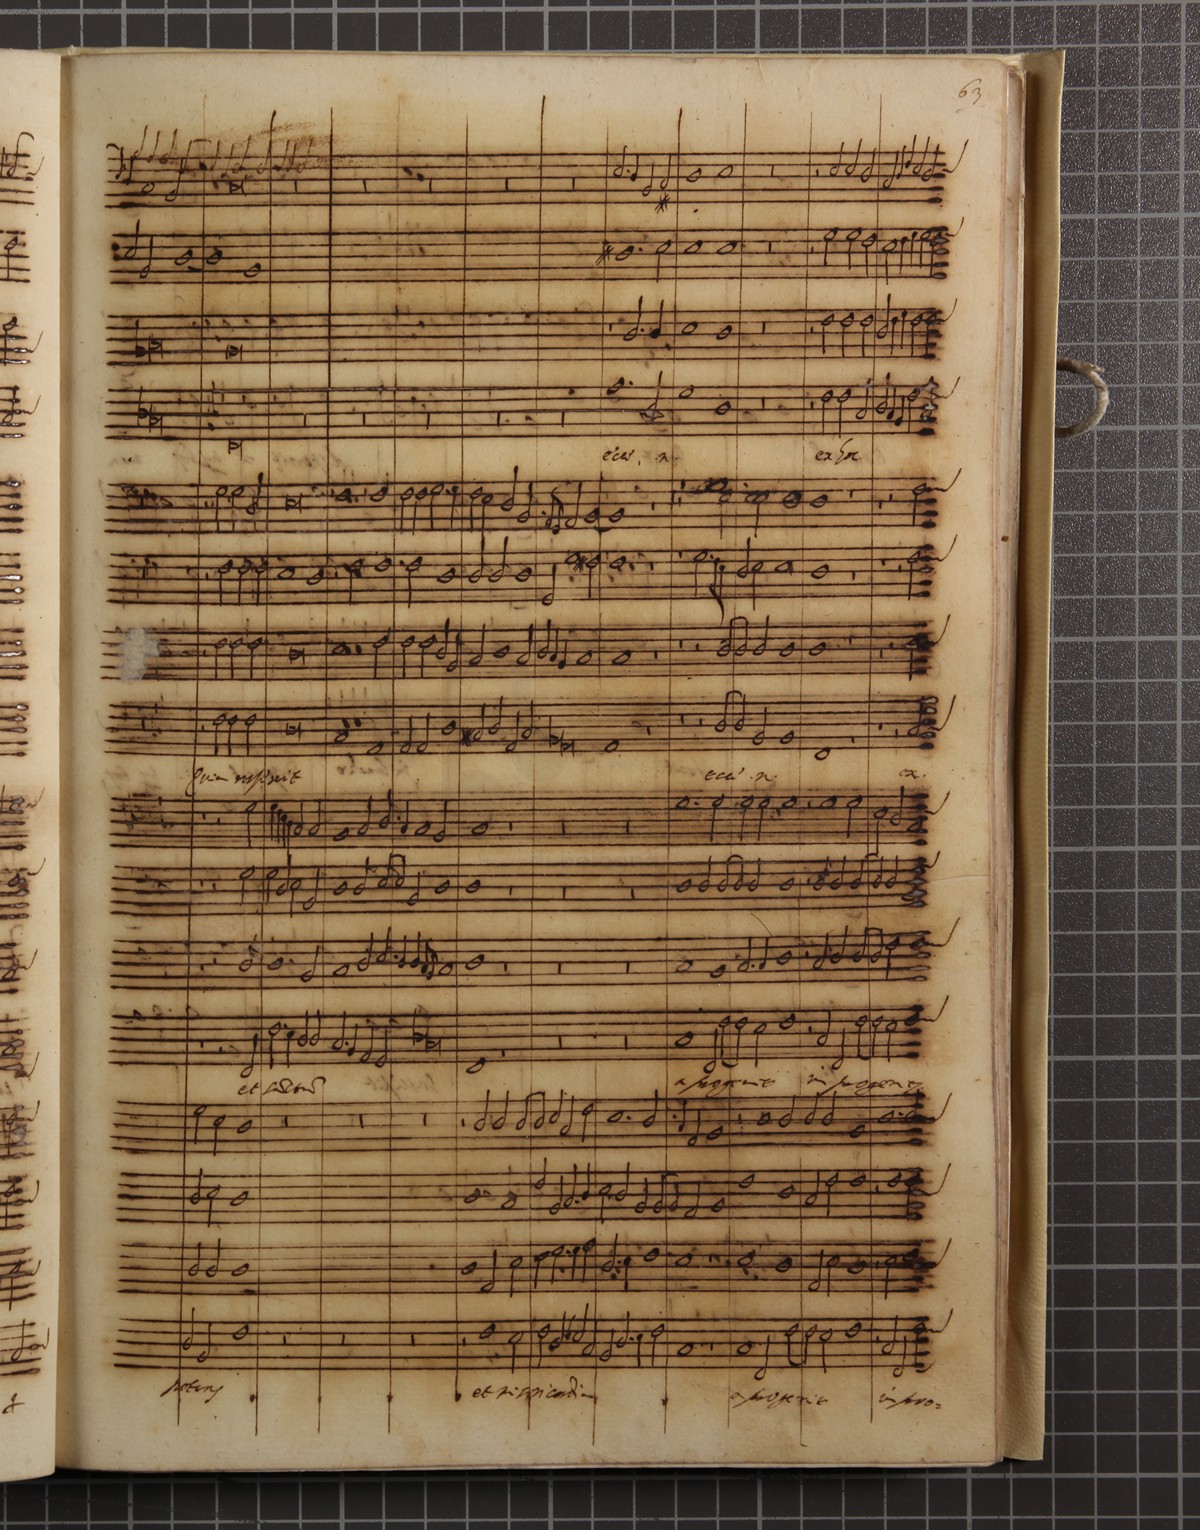 63
ecce n. ex hoc
Quia respexit ecce n. ex
et sanctum a progenie in progenies
potens et misericordia a progenie in pro=